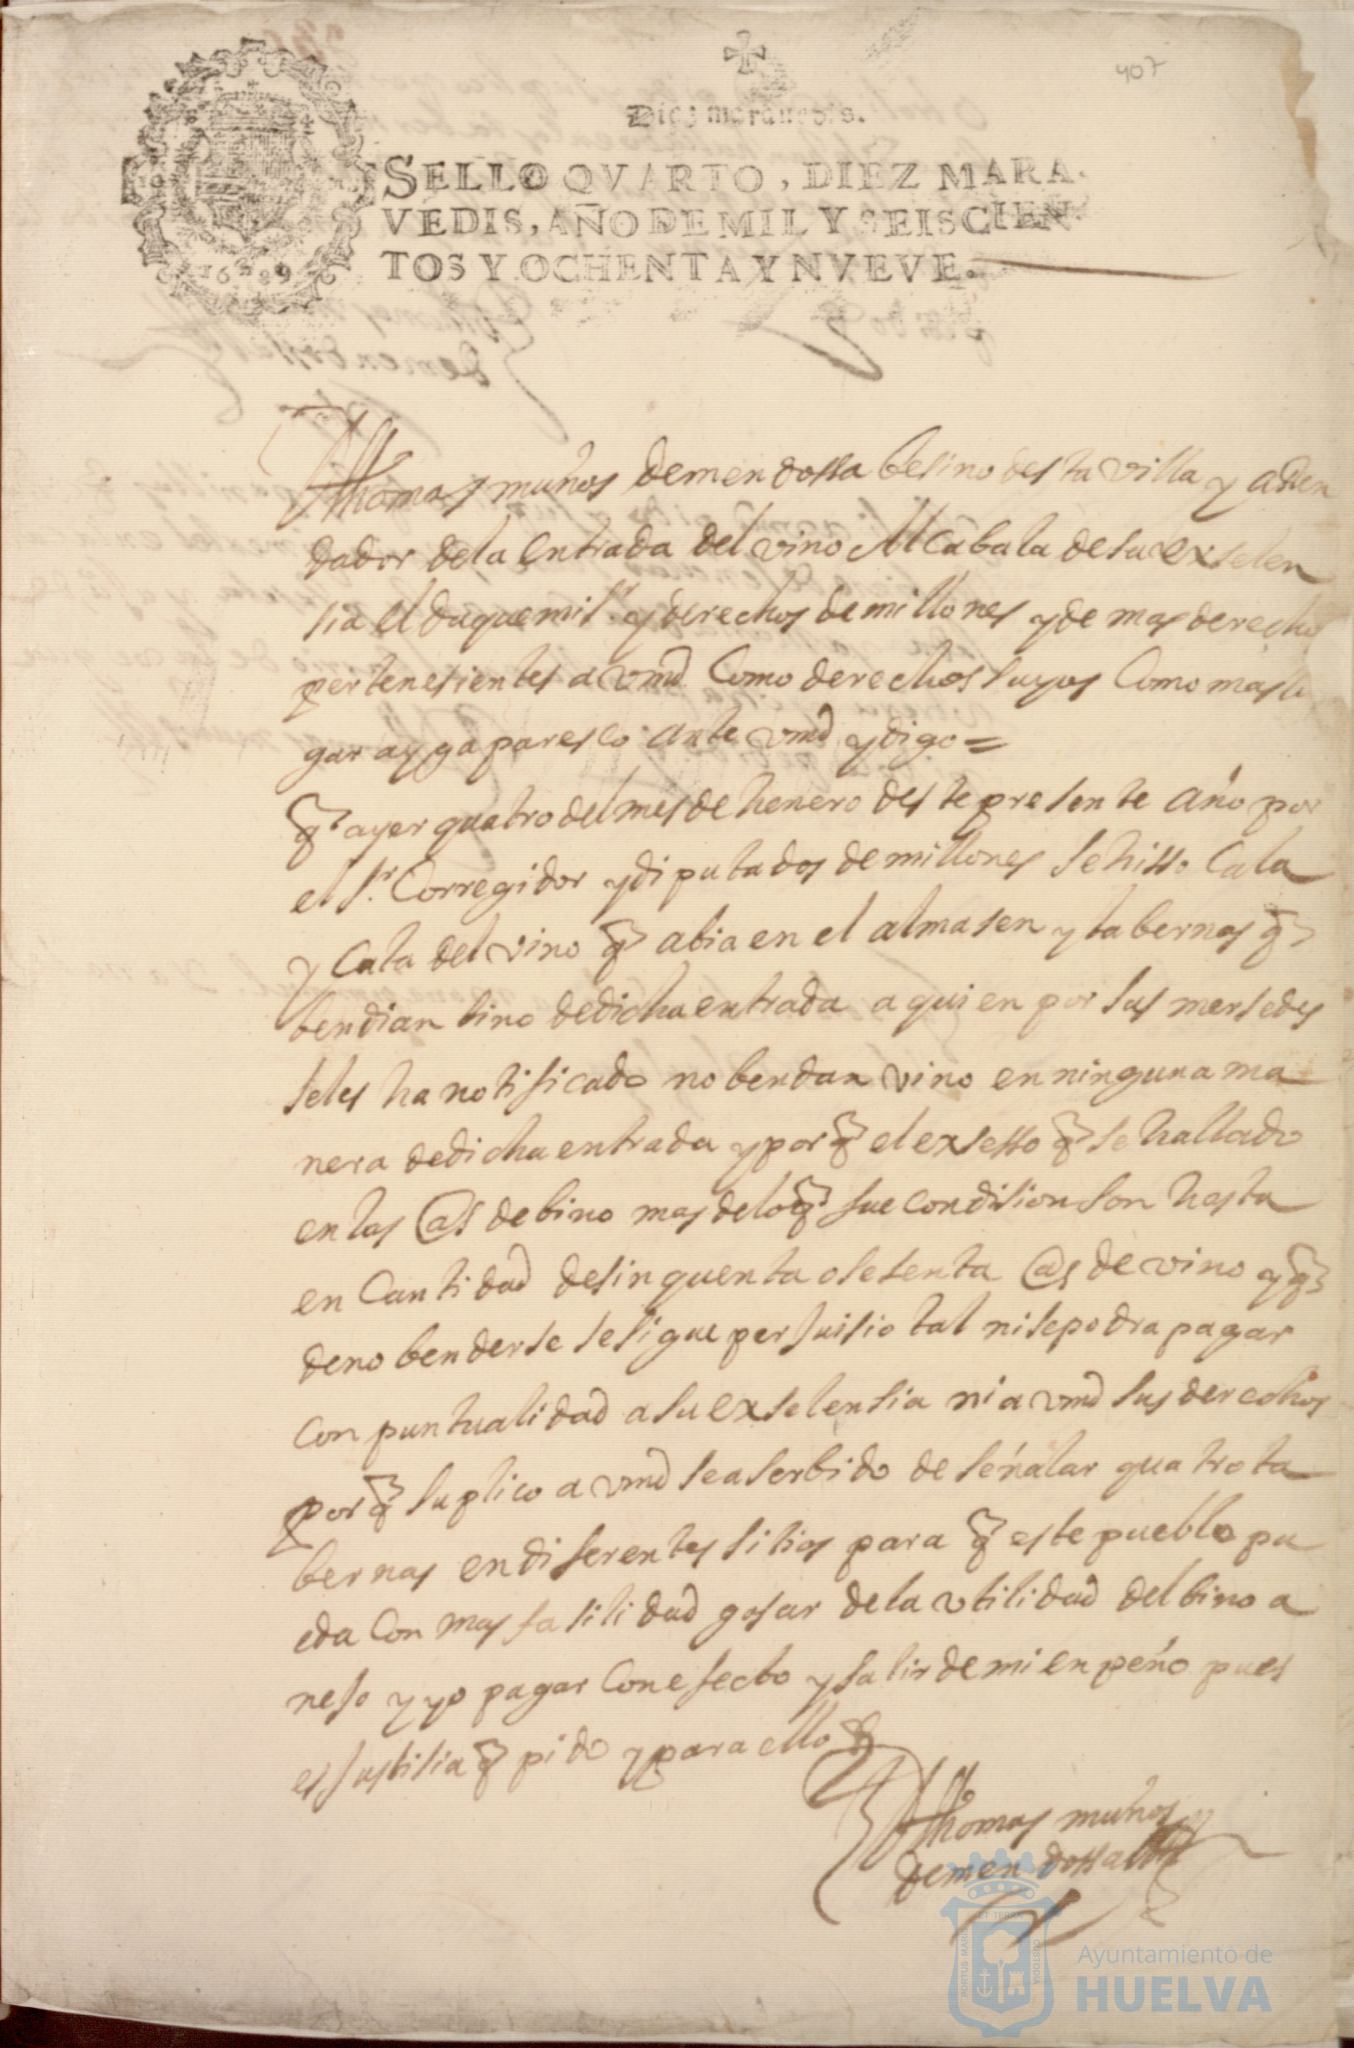 407
Diez marauedis.
SELLO QVARTO, DIEZ MARA-
VEDIS, AÑO DE MIL Y SEISCIEN-
TOS Y OCHENTA Y NVEVE.
1689
Thomas muños de mendossa besino desta villa y aRen
dador de la entrada del vino Alcabala de su exselen
sia el duque mi sr y derechos de millones y demas derechos
pertenesientes a vmd Como derechos suyos Como mas lu
gar ayga paresco ante vmd y digo =
q ayer quatro del mes de henero deste presente Año por
el sr. Corregidor y diputados de millones se hisso Cala
y Cata del vino q abia en el almasen y tabernas q
bendian bino de dicha entrada a quien por sus mersedes
seles ha notificado no bendan vino en ninguna ma
nera de dicha entrada y por q el exsesso q se hallado
en las @s de bino mas delo q fue condision son hasta
en Cantidad de sinquenta o sesenta @s de vino y q
de no benderse se sigue perJuisio tal ni se podra pagar
con puntualidad a su exselensia ni a vmd sus derechos
por q suplico a vmd sea serbido de señalar quatro ta
bernas en diferentes sitios para q este pueblo pu
eda con mas fasilidad gosar de la vtilidad del bino a
neso y yo pagar Con efecto y salir de mi enpeño pues
es Justisia q pido y para ello &
Thomas muños
de mendossa
PORTUS MARIS
ET TERRAE
CUSTODIA
Ayuntamiento de
HUELVA